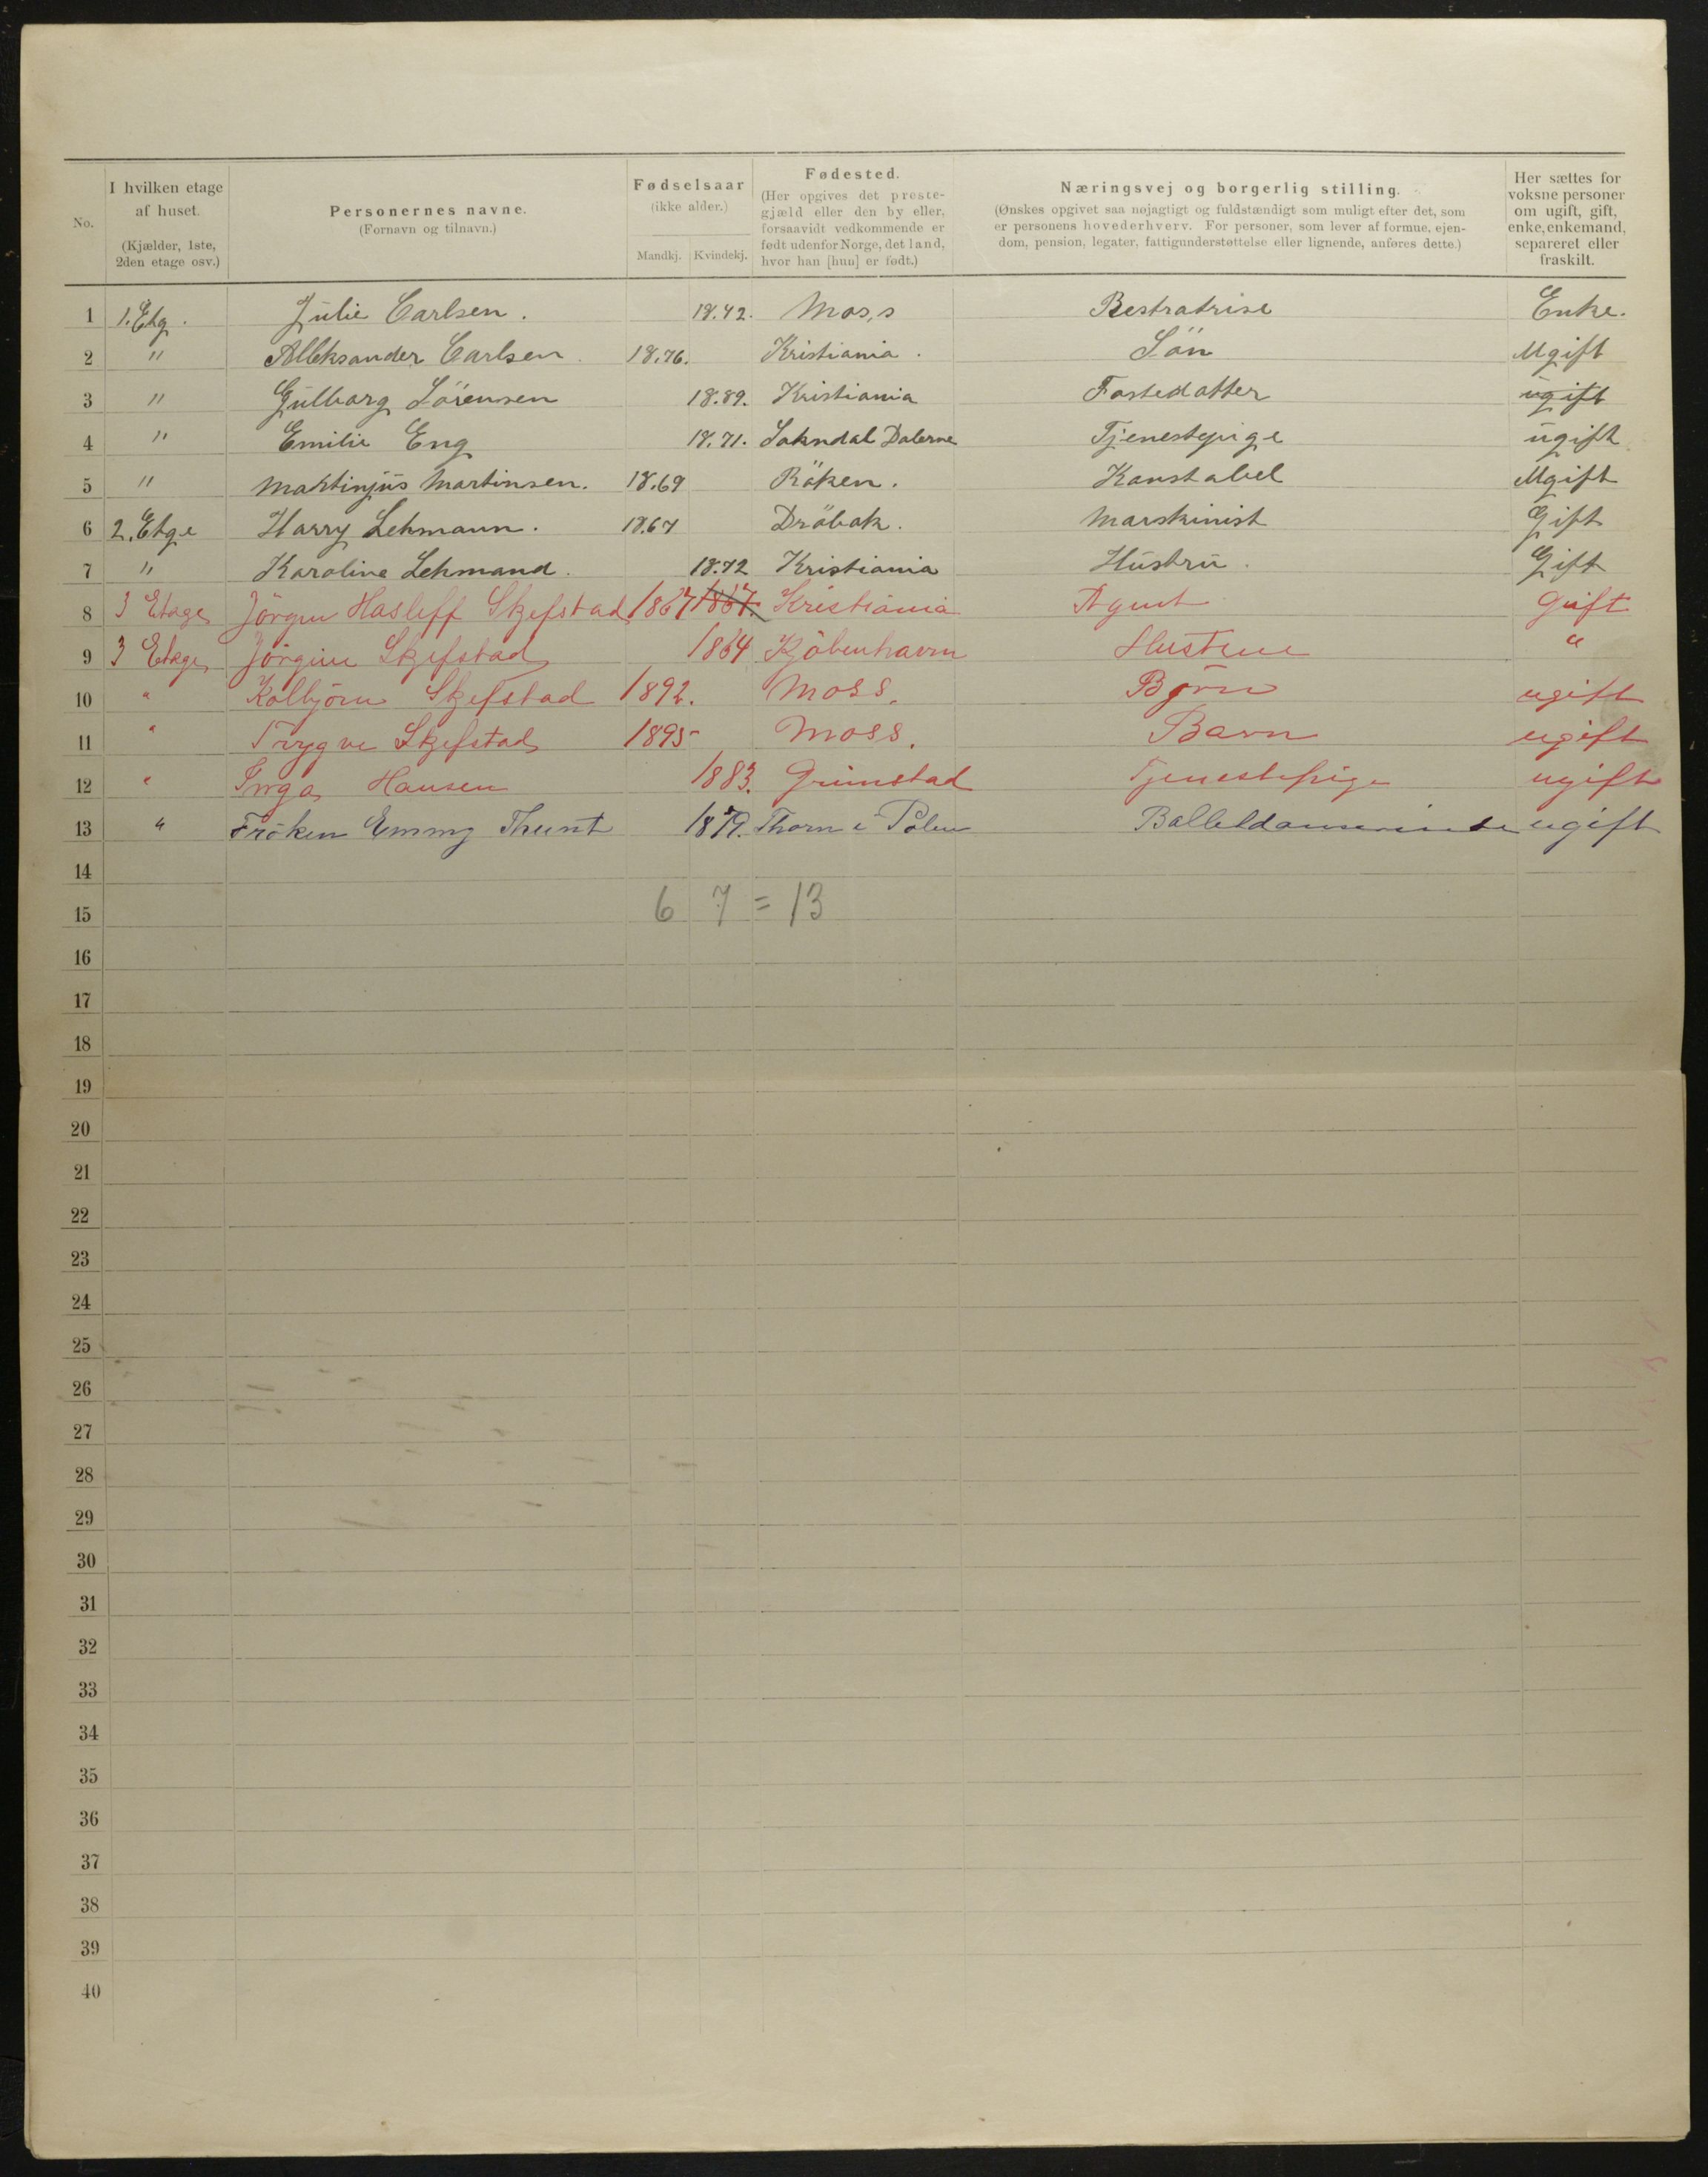 No. I hvilken etage af huset. (Kjælder, 1ste, 2den etage osv.) Personernes navne. (Fornavn og tilnavn.) Fødselsaar (ikke alder.) Mandkj. Kvindekj. Fødested. (Her opgives det prestegjæld eller den by eller, forsaavidt vedkommende er født udenfor Norge, det land, hvor han [hun] er født.) Næringsvej og borgerlig stilling. (Ønskes opgivet saa nøjagtigt og fuldstændigt som muligt efter det, som er personens hovederhverv. For personer, som lever af formue, ejendom, pension, legater, fattigunderstøttelse eller lignende, anføres dette.) Her sættes for voksne personer om ugift, gift, enke, enkemand, separeret eller fraskilt.
1 1. Etg. Julie Carlsen. 18.42. Mos,s Restratrise Enke.
2 " Alleksander Carlsen. 18.76. Kristiania. Sön Ugift
3 " Gulborg Sörensen 18.89. Kristiania Fostedatter ugift
4 " Emilie Eng 18.71. Sokndal Dalerne Tjenestepige ugift
5 " Martinjus Martinsen. 18.69 Röken. Konstabel Ugift
6 2. Etge Harry Lehmann. 18.67 Dröbak. Marskinist Gift
7 " Karoline Lehmand. 18.72 Kristiania Hustru. Gift
8 3 Etage Jörgen Hasleff Skjefstad 1867 1867. Kristiania Agent Gift
9 3 Etage Jörgine Skjefstad 1864 Kjöbenhavn Hustrue "
10 " Kolbjörn Skjefstad 1892. Moss. Børn ugift
11 " Trygve Skjefstad 1895 Moss. Barn ugift
12 " Inga Hansen 1883. Grimstad Tjenestepige ugift
13 " Fröken Emmy Thunt 1879. Thorn i Polen Balletdanserinde ugift
14
15 6 7 = 13
16
17
18
19
20
21
22
23
24
25
26
27
28
29
30
31
32
33
34
35
36
37
38
39
40